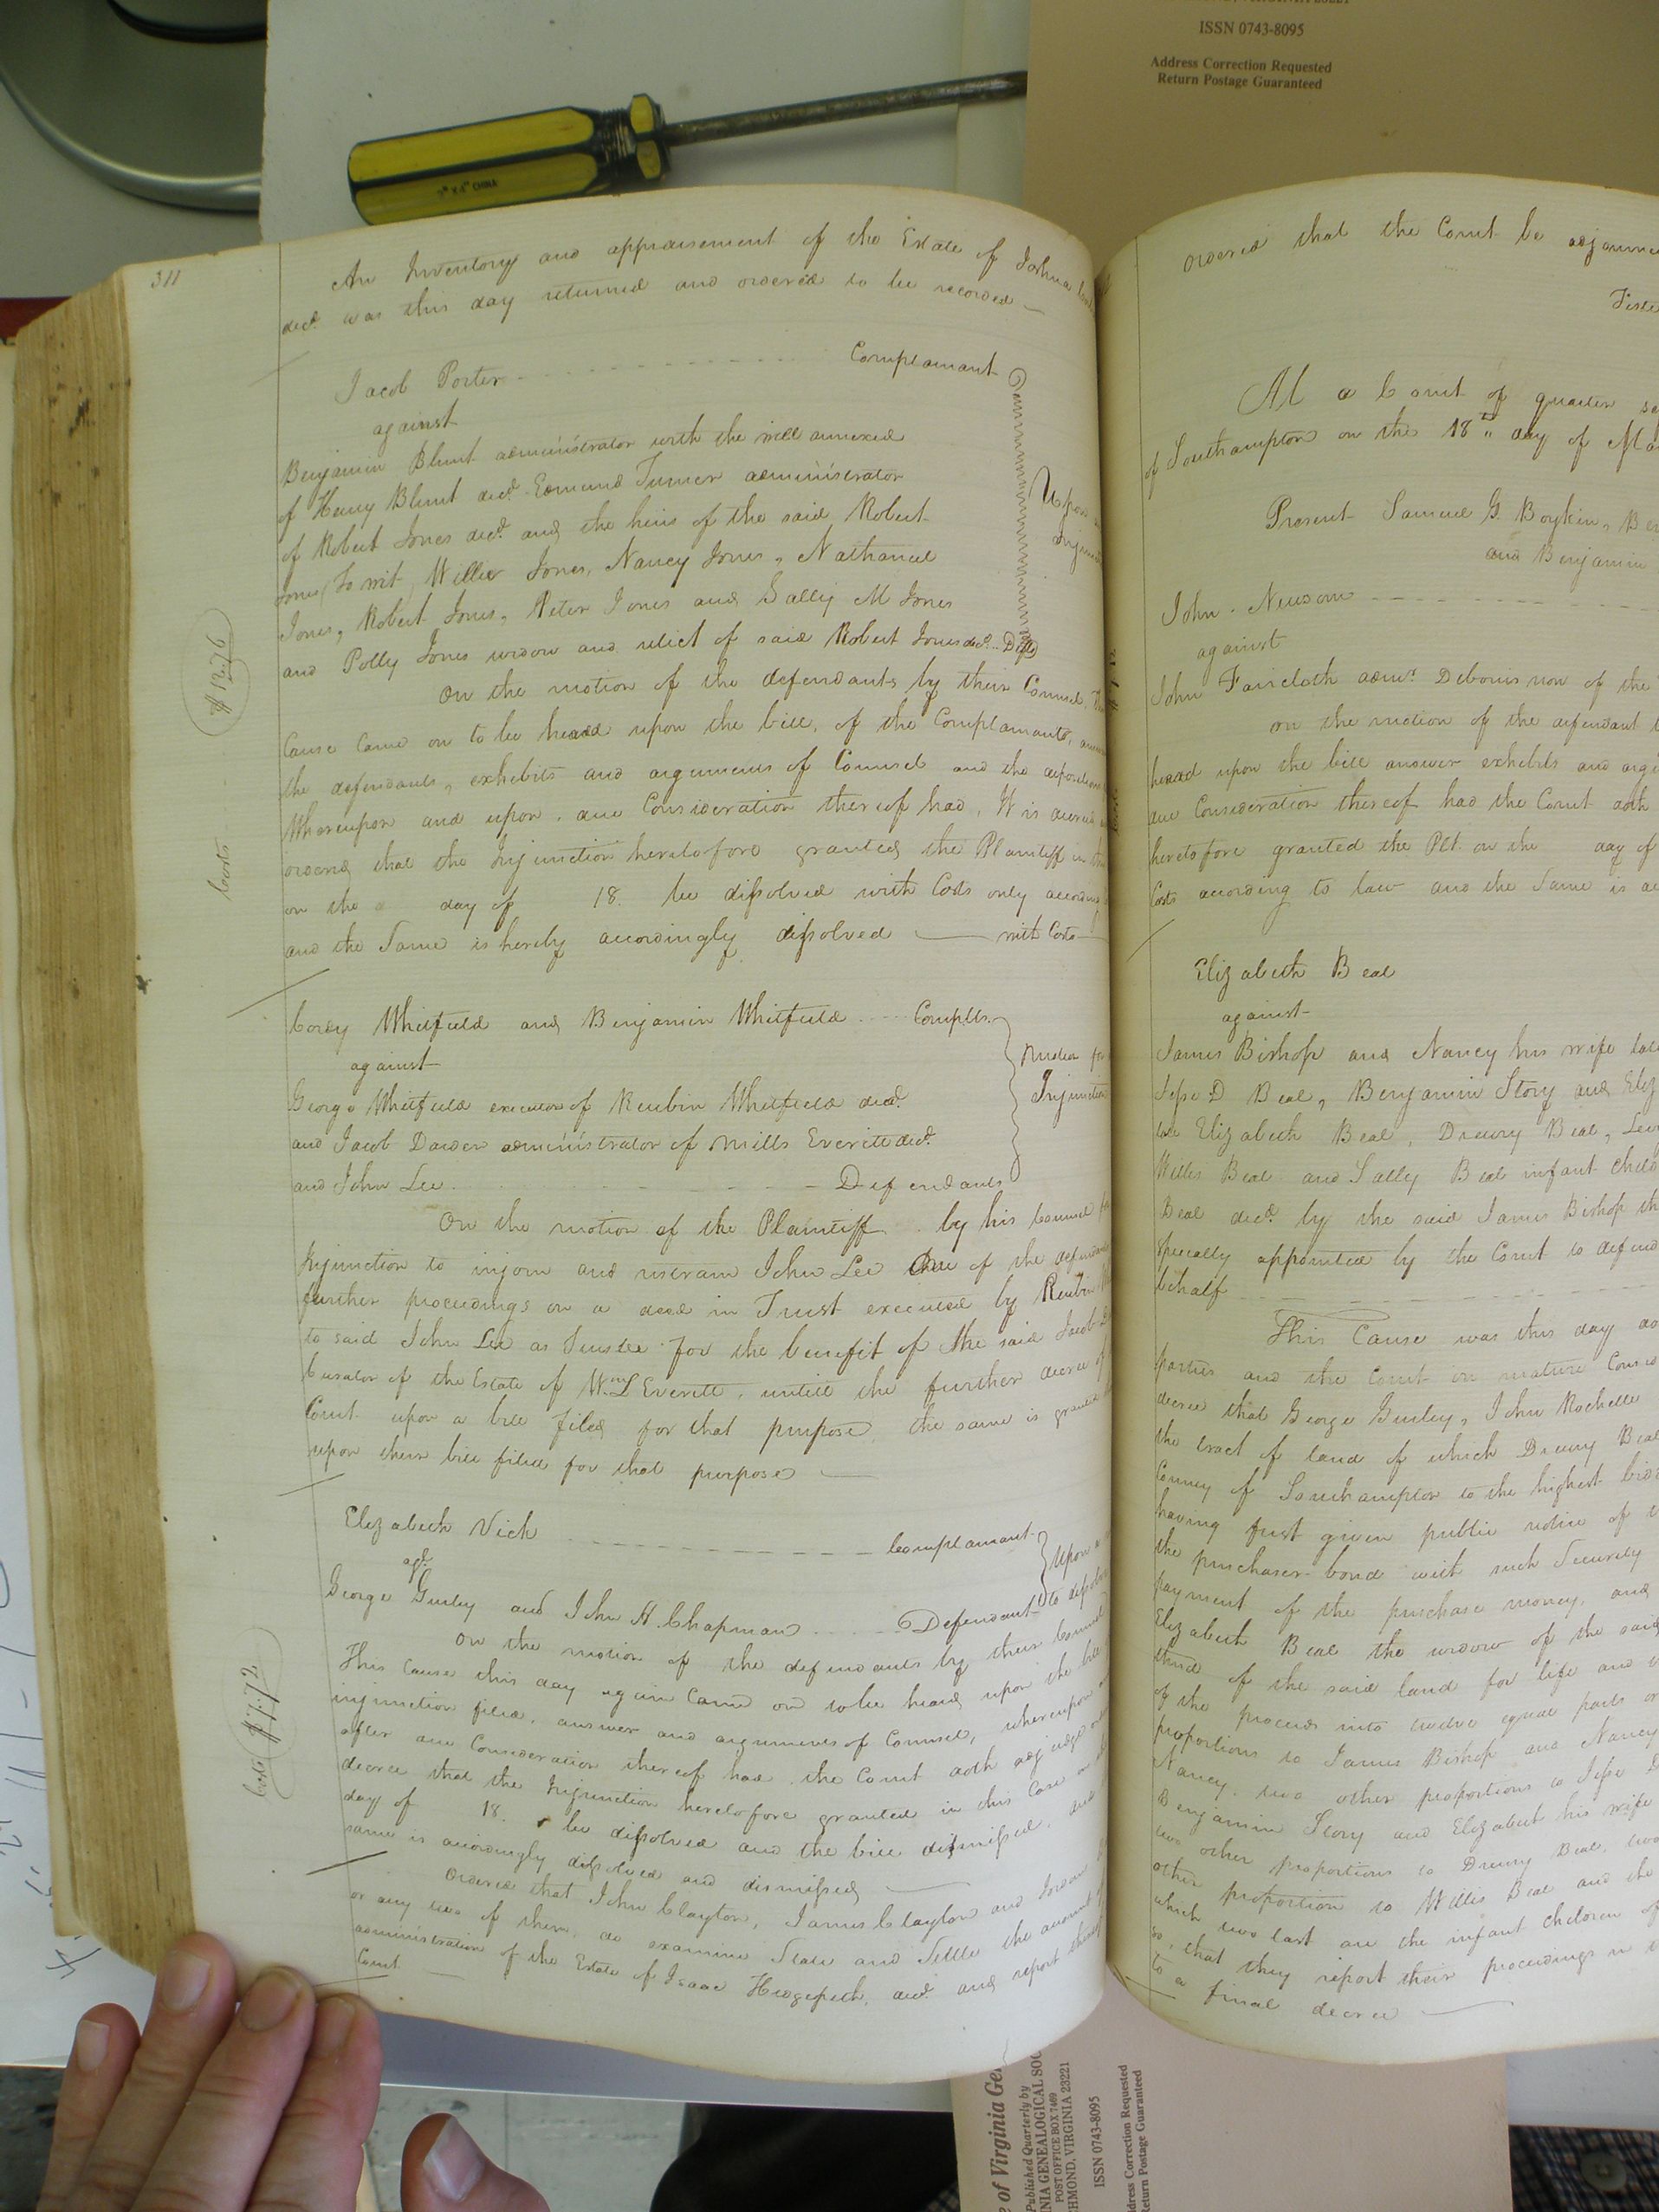 ISSN 0743-8095
Address Correction Requested
Return Postage Guaranteed
CHINA
311
An Inventory and appraisement of the Estate of Joshua
decd. was this day returned and ordered to be recorded
Jacob Porter Complainant
against
Benjamin Blunt administrator with the will annexed
of Henry Blunt decd. Edmund Turner administrator
of Robert Jones decd. and the heirs of the said Robert
Jones (To wit) Willie Jones, Nancy Jones, Nathaniel
Jones, Robert Jones, Peter Jones and Sally M Jones
and Polly Jones widow and relict of said Robert Jones decd. Defts
Upon
On the motion of the defendants by their Counsel, This
Cause Came on to be heard upon the bill, of the Complainants,
the defendants, exhibits and arguments of Counsel and the
Whereupon and upon due Consideration thereof had, It is
ordered that the Injunction heretofore granted the Plaintiff in
on the day of 18. be dissolved with Costs only
and the Same is hereby accordingly dissolved with Costs
Costs
Cordy Whitfield and Benjamin Whitfield Complts.
against
George Whitfield executor of Reubin Whitfield decd.
and Jacob Darden administrator of Mills Everitt decd.
and John Lee Defendants
Motion for
Injunction
On the motion of the Plaintiff by his Counsel for
Injunction to injoin and restrain John Lee One of the
further proceedings on a deed in Trust executed by Reubin
to said John Lee as Trustee for the benefit of the said Jacob
Curator of the Estate of Wm. L Everitt, untill the further decree of
Court upon a bill filed for that purpose, the same is granted
upon their bill filed for that purpose
Elizabeth Vick Complainant
agt.
George Gurley and John H. Chapman Defendants
Upon
to dissolve
On the motion of the defendants by their Counsel
This Cause this day again Came on to be heard upon the bill
injunction filed, answer and arguments of Counsel, whereupon
after due Consideration thereof had, the Court doth adjudge
decree that the Injunction heretofore granted in this Case
day of 18. be dissolved and the bill dismissed, and
same is accordingly dissolved and dismissed
Costs $7.72
Ordered that John Clayton, James Clayton and Jordan
or any two of them, do examine State and Settle the account of
administration of the Estate of Isaac Hedgepeth, decd. and report
Court
ordered that the Court be adjourned
At a Court of quarter
of Southampton on the 18th day of
Present Samuel G. Boykin,
and Benjamin
John Newsom
against
John Faircloth admr. Debonis non of the
on the motion of the defendant
heard upon the bill answer exhibits and
due Consideration thereof had the Court doth
heretofore granted the Plt. on the day of
Costs according to law and the Same is
Elizabeth Beal
against
James Bishop and Nancy his wife late
Jesse D Beal, Benjamin Story and
late Elizabeth Beal, Drewry Beal,
Willis Beal and Sally Beal infant
Beal decd. by the said James Bishop
specially appointed by the Court to defend
behalf
This Cause was this day
parties and the Court on mature
decree that George Gurley, John Rochelle
the tract of land of which Drewry Beal
County of Southampton to the highest
having first given public notice of
the purchaser bond with such Security
payment of the purchase money, and
Elizabeth Beal the widow of the said
third of the said land for life and
of the proceeds into twelve equal parts
proportions to James Bishop and Nancy
Nancy, two other proportions to Jesse D
Benjamin Story and Elizabeth his wife
two other proportions to Drewry Beal, two
other proportion to Willis Beal and the
which two last are the infant children of
so, that they report their proceedings
to a final decree
of Virginia
Published Quarterly by
GENEALOGICAL
POST OFFICE BOX 7469
VIRGINIA 23221
ISSN 0743-8095
Address Correction Requested
Return Postage Guaranteed